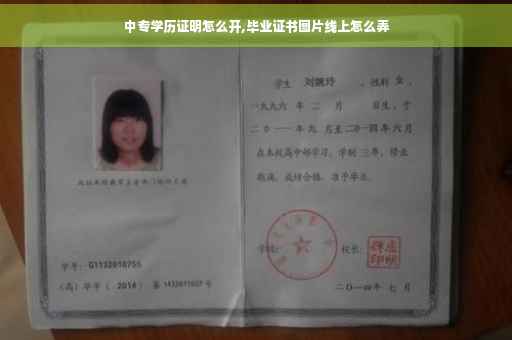 中专学历证明怎么开,毕业证书图片线上怎么弄
学生 刘婉玲 ,性别 女 ,
一九九六 年 二 月 日生,于
二〇一一 年 九 月至 二〇一四 年 六 月
在本校高中部学习,学制 三 年,修业
期满,成绩合格,准予毕业。
学校: 校长:
二〇一四 年 七 月
学号: G1132010755
(高)毕字( 2014 )第 1432011027 号